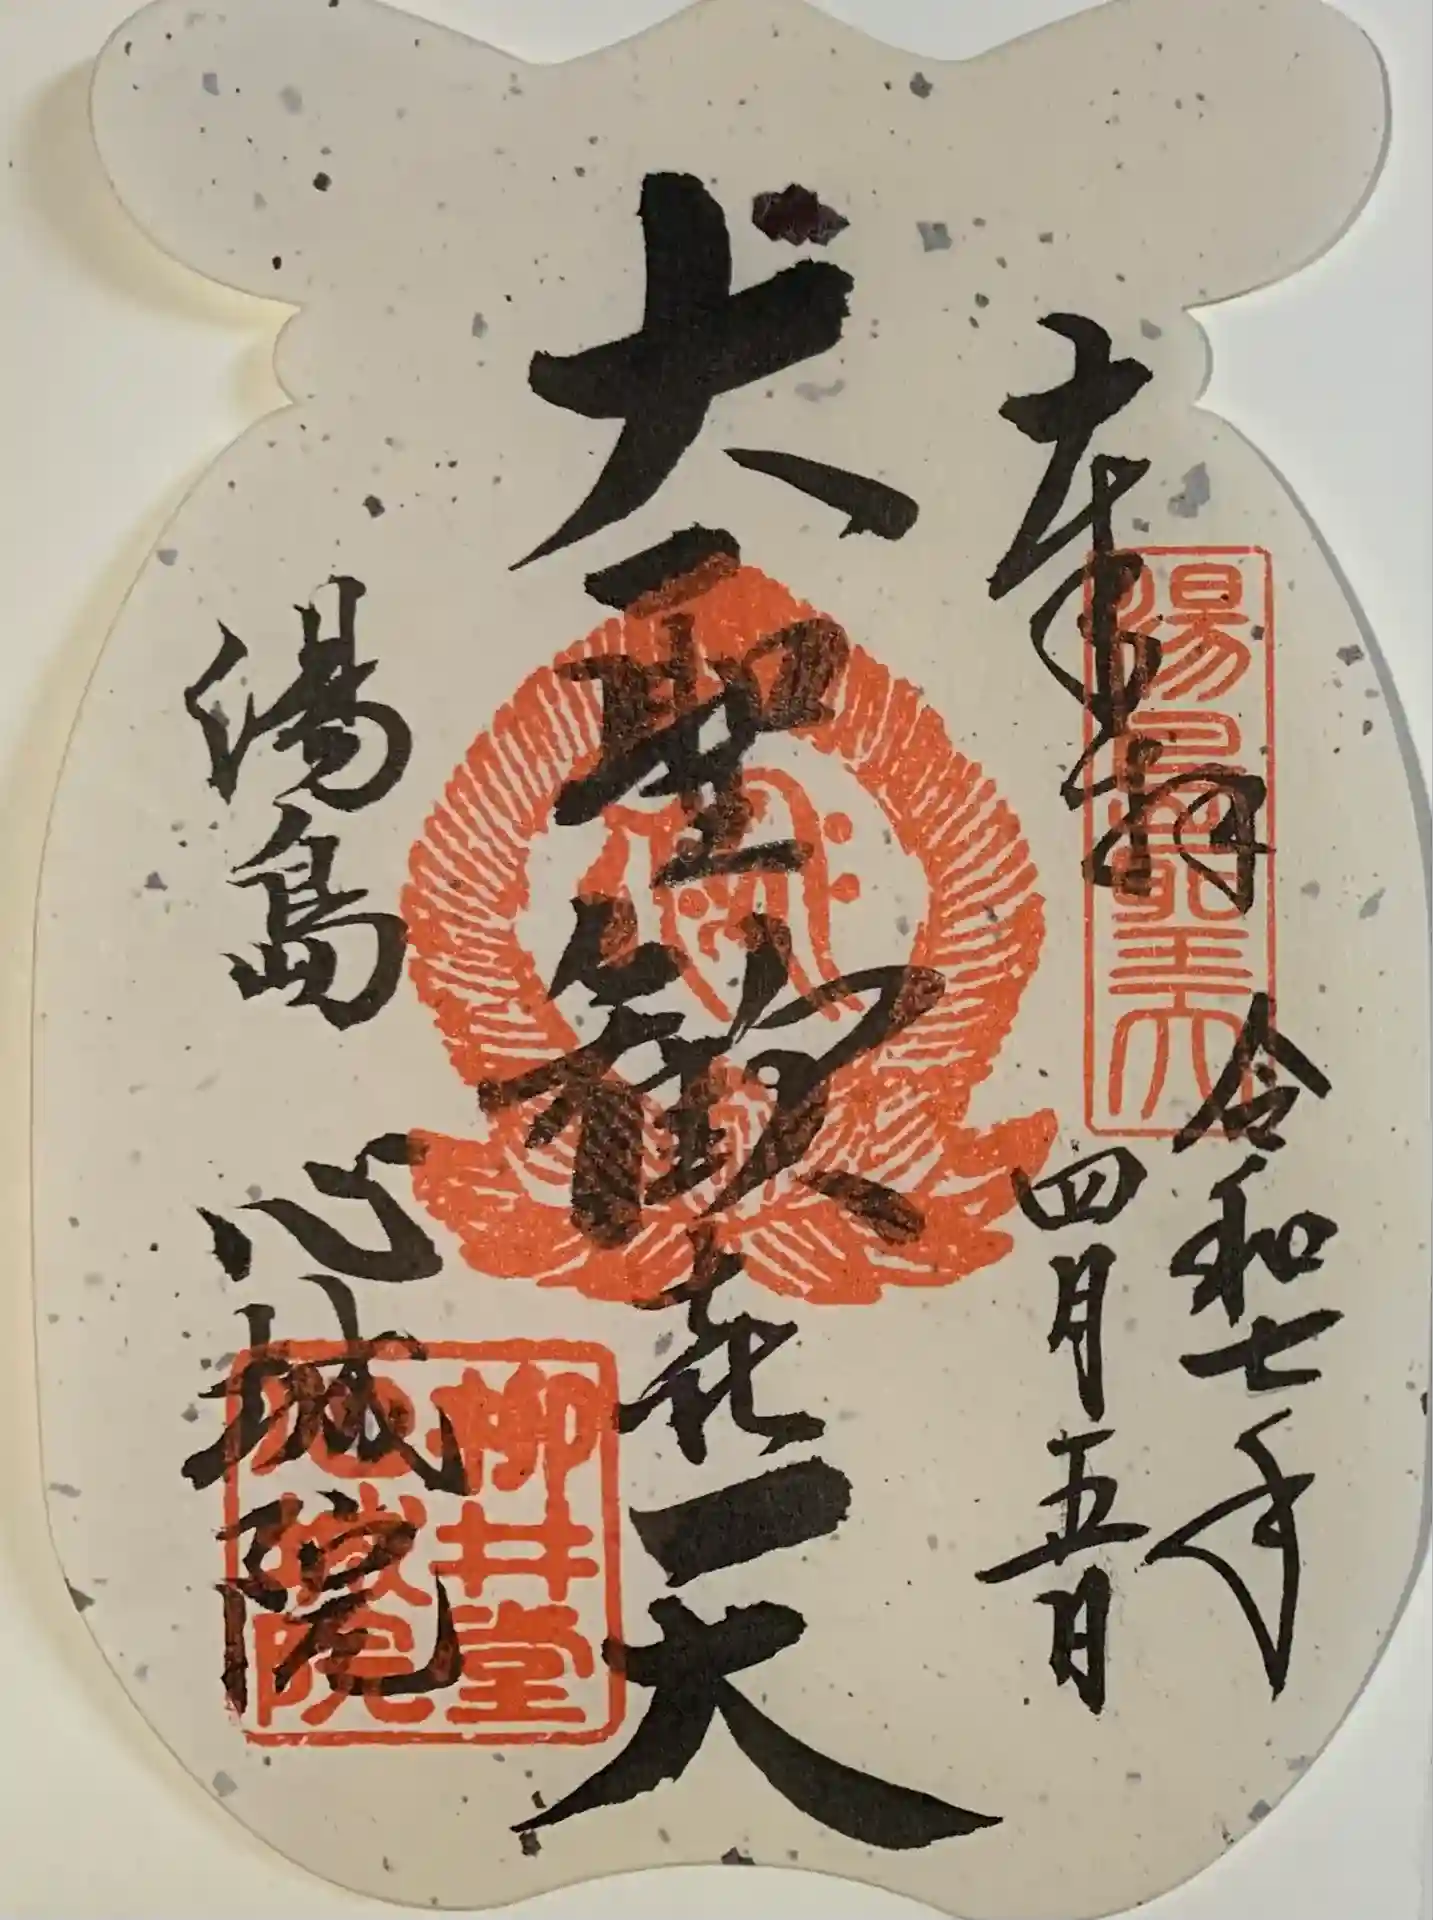 奉拝
令和七年
四月五日
大聖歓喜天
湯島 心城院
湯島聖天
柳井堂
心城院